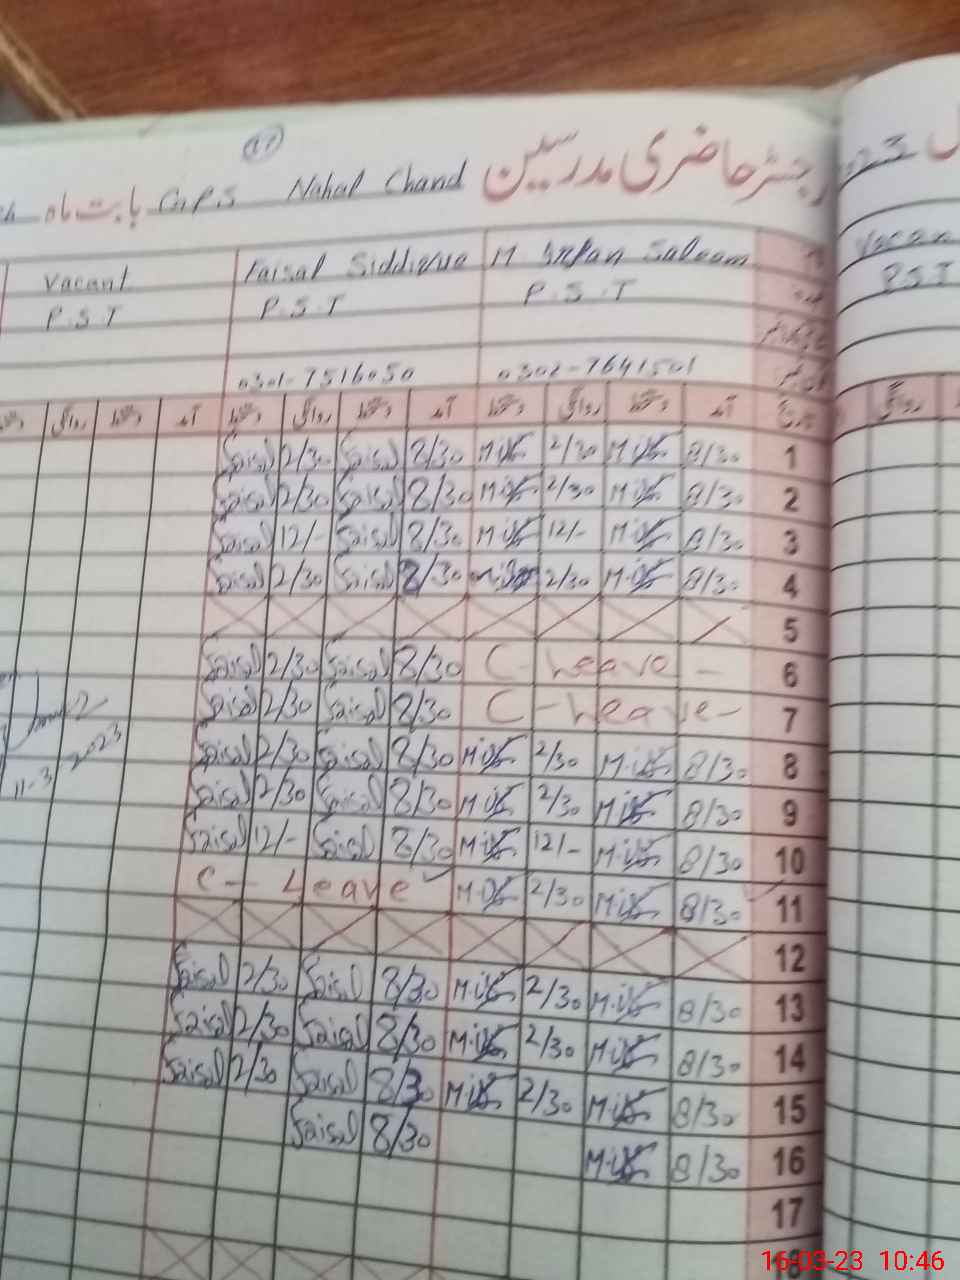 رجسٹر حاضری مدرسین Nahal Chand G.P.S بابت ماہ
M Irfan Saleem Faisal Siddique Vacant
P.S.T P.S.T P.S.T Vacan
P.S.T
0302-7641501 0301-7516050
تاریخ آمد دستخط روانگی دستخط آمد دستخط روانگی دستخط آمد دستخط روانگی
1 8/30 2/30 8/30 Faisal 2/30 Faisal
2 8/30 2/30 8/30 Faisal 2/30 Faisal
3 8/30 12/- 8/30 Faisal 12/- Faisal
4 8/30 2/30 8/30 Faisal 2/30 Faisal
5
6 C - Leave - 8/30 Faisal 2/30 Faisal
7 C - Leave - 8/30 Faisal 2/30 Faisal
8 8/30 2/30 8/30 Faisal 2/30 Faisal
9 8/30 2/30 8/30 Faisal 2/30 Faisal
10 8/30 12/- 8/30 Faisal 12/- Faisal
11 8/30 2/30 C - Leave
12
13 8/30 2/30 8/30 Faisal 2/30 Faisal
14 8/30 2/30 8/30 Faisal 2/30 Faisal
15 8/30 2/30 8/30 Faisal 2/30 Faisal
16 8/30 8/30 Faisal
17
18
11-3 2023
16-03-23 10:46